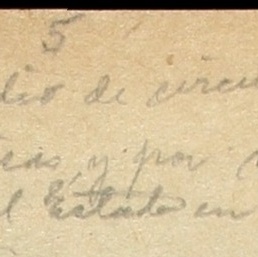 5
dio de circu
icas, y por
l Estado en